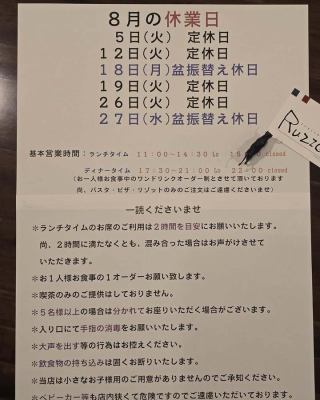 ８月の休業日
５日(火) 定休日
１２日(火) 定休日
１８日(月)盆振替え休日
１９日(火) 定休日
２６日(火) 定休日
２７日(水)盆振替え休日
基本営業時間：ランチタイム １１:００～１４:３０ Lo closed
ディナータイム １７:３０～２１:００ Lo ２２:００ closed
（お一人様お食事中のワンドリンクオーダー制とさせて頂いております
尚、パスタ・ピザ・リゾットのみのご注文はご遠慮くださいませ）
一読くださいませ
＊ランチタイムのお席のご利用は２時間を目安にお願いいたします。
尚、２時間に満たなくとも、混み合った場合はお声がけさせて
いただきます。
＊お１人様お食事の１オーダーお願い致します。
＊喫茶のみのご提供はしておりません。
＊５名様以上の場合は分かれてお座りいただく場合がございます。
＊入り口にて手指の消毒をお願いいたします。
＊大声を出す等の行為はお控えください。
＊飲食物の持ち込みは固くお断りいたします。
＊当店は小さなお子様用のご用意がありませんのでご承知ください。
＊ベビーカー等も店内狭くて危険ですのでご遠慮いただいております。